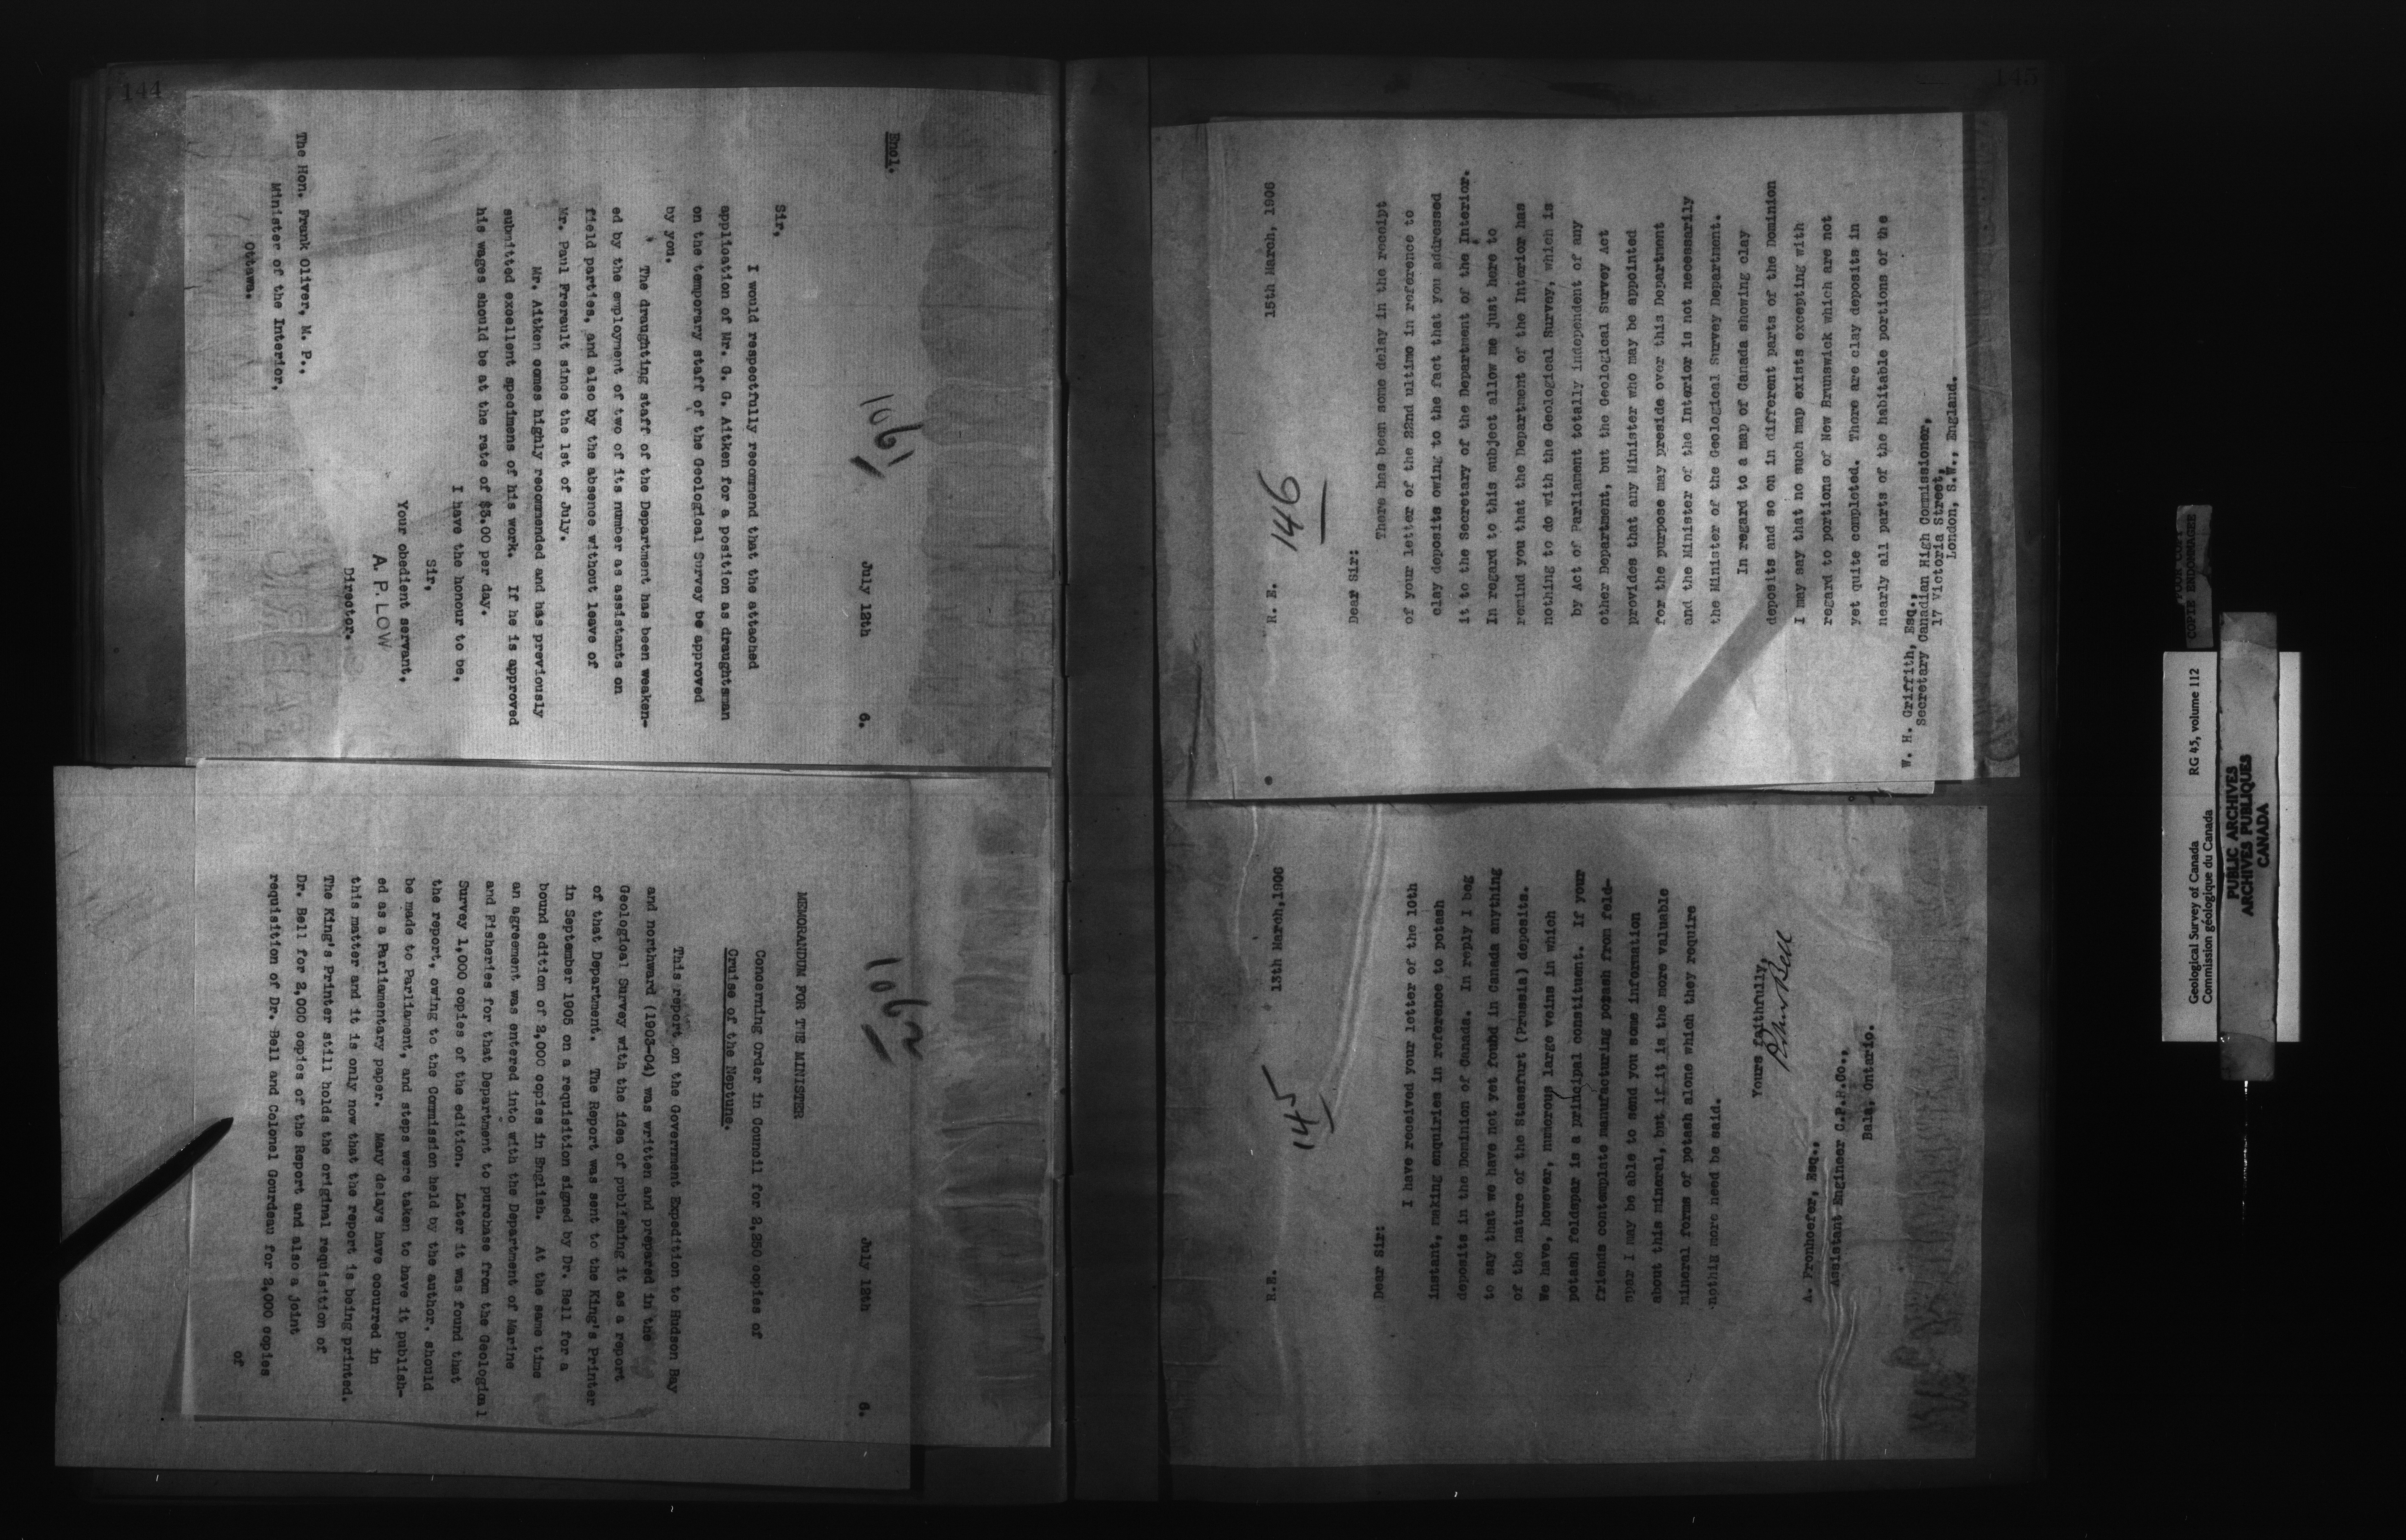 144
Encl.
1061
July 12th 6.
Sir,
I would respectfully recommend that the attached
application of Mr. G. G. Aitken for a position as draughtsman
on the temporary staff of the Geological Survey be approved
by you.
The draughting staff of the Department has been weaken-
ed by the employment of two of its number as assistants on
field parties, and also by the absence without leave of
Mr. Paul Frerault since the 1st of July.
Mr. Aitken comes highly recommended and has previously
submitted excellent specimens of his work. If he is approved
his wages should be at the rate of $3.00 per day.
I have the honour to be,
Sir,
Your obedient servant,
A. P. LOW
Director.
The Hon. Frank Oliver, M. P.,
Minister of the Interior,
Ottawa.
1062
July 12th 6.
MEMORANDUM FOR THE MINISTER
Concerning Order in Council for 2,250 copies of
Cruise of the Neptune.
This report on the Government Expedition to Hudson Bay
and northward (1903-04) was written and prepared in the
Geological Survey with the idea of publishing it as a report
of that Department. The Report was sent to the King's Printer
in September 1905 on a requisition signed by Dr. Bell for a
bound edition of 2,000 copies in English. At the same time
an agreement was entered into with the Department of Marine
and Fisheries for that Department to purchase from the Geological
Survey 1,000 copies of the edition. Later it was found that
the report, owing to the Commission held by the author, should
be made to Parliament, and steps were taken to have it publish-
ed as a Parliamentary paper. Many delays have occurred in
this matter and it is only now that the report is being printed.
The King's Printer still holds the original requisition of
Dr. Bell for 2,000 copies of the Report and also a joint
requisition of Dr. Bell and Colonel Gourdeau for 2,000 copies
of
145
R. E. 15th March, 1906
146
Dear Sir:
There has been some delay in the receipt
of your letter of the 22nd ultimo in reference to
clay deposits owing to the fact that you addressed
it to the Secretary of the Department of the Interior.
In regard to this subject allow me just here to
remind you that the Department of the Interior has
nothing to do with the Geological Survey, which is
by Act of Parliament totally independent of any
other Department, but the Geological Survey Act
provides that any Minister who may be appointed
for the purpose may preside over this Department
and the Minister of the Interior is not necessarily
the Minister of the Geological Survey Department.
In regard to a map of Canada showing clay
deposits and so on in different parts of the Dominion
I may say that no such map exists excepting with
regard to portions of New Brunswick which are not
yet quite completed. There are clay deposits in
nearly all parts of the habitable portions of the
W. H. Griffith, Esq.,
Secretary Canadian High Commissioner,
17 Victoria Street,
London, S.W., England.
R.E. 13th March,1906
145
Dear Sir:
I have received your letter of the 10th
instant, making enquiries in reference to potash
deposits in the Dominion of Canada. In reply I beg
to say that we have not yet found in Canada anything
of the nature of the Stassfurt (Prussia) deposits.
We have, however, numerous large veins in which
potash feldspar is a principal constituent. If your
friends contemplate manufacturing potash from feld-
spar I may be able to send you some information
about this mineral, but if it is the more valuable
mineral forms of potash alone which they require
nothing more need be said.
Yours faithfully,
Robert Bell
A. Fronhoefer, Esq.,
Assistant Engineer C.P.R.Co.,
Bala, Ontario.
POOR COPY
COPIE ENDOMAGEE
Geological Survey of Canada RG 45, volume 112
Commission géologique du Canada
PUBLIC ARCHIVES
ARCHIVES PUBLIQUES
CANADA